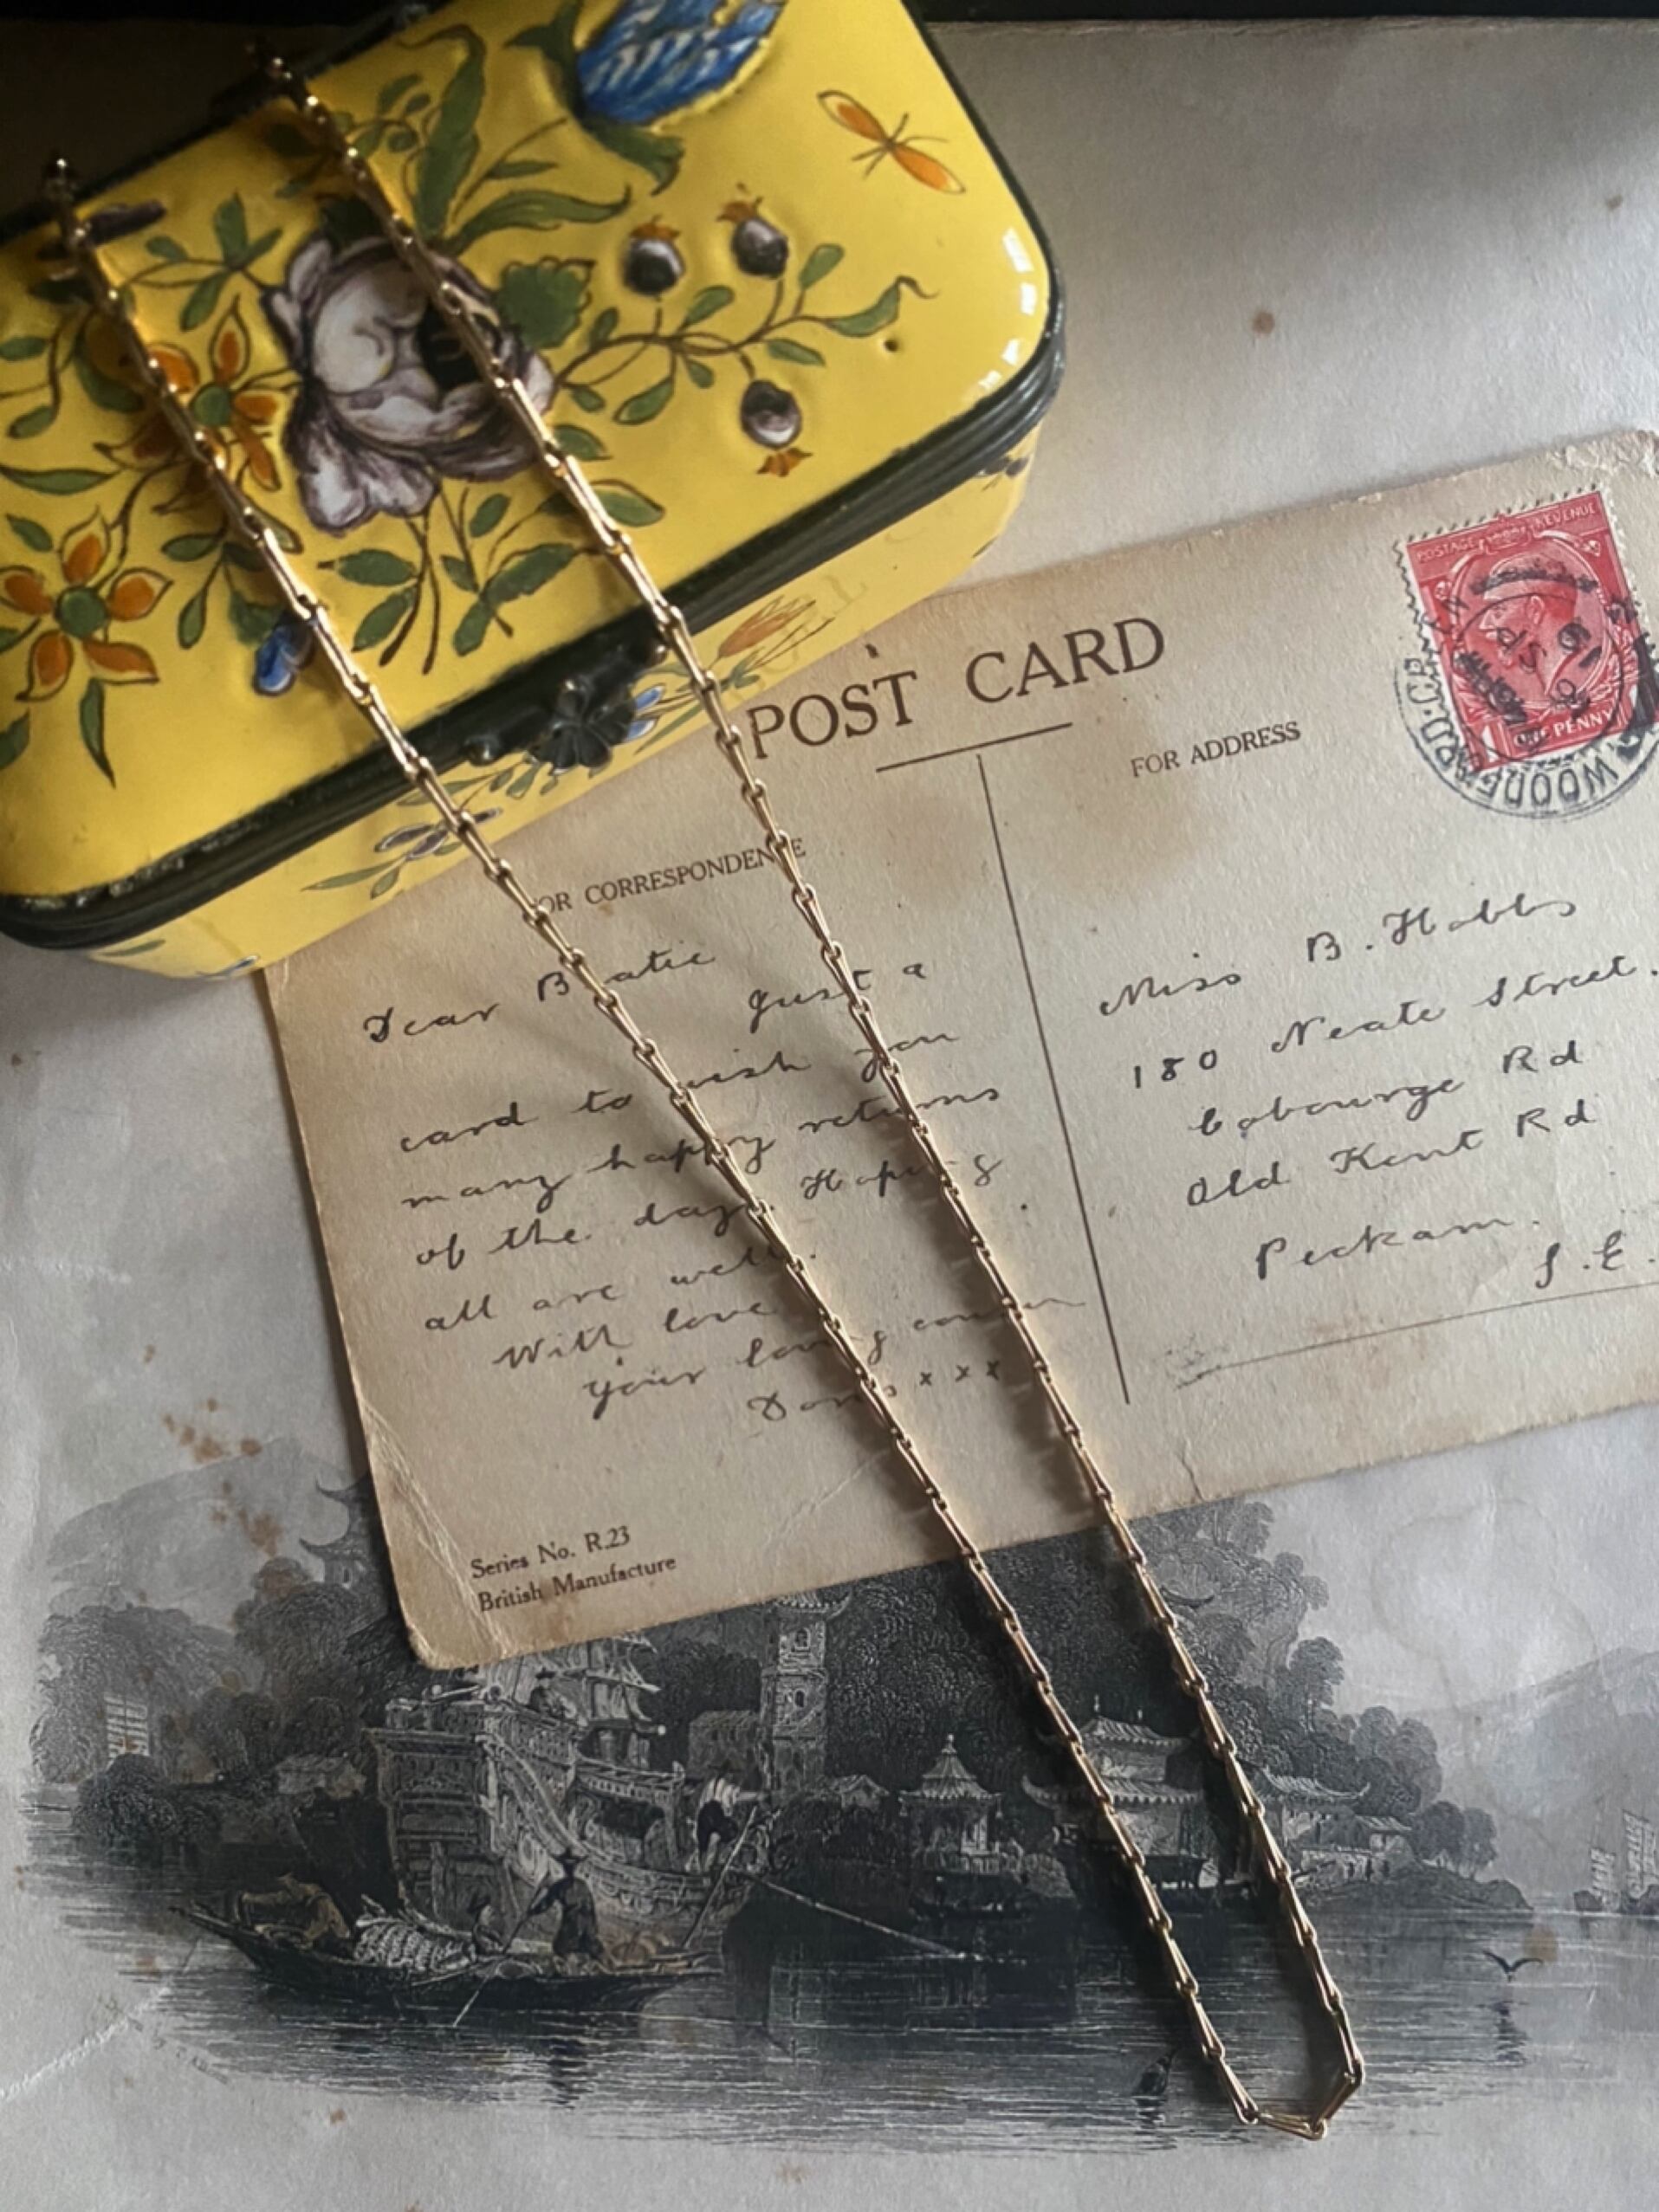 POST CARD
FOR CORRESPONDENCE
FOR ADDRESS
POSTAGE REVENUE
ONE PENNY
Dear B atie
Just a
card to wish you
many happy returns
of the day. Hoping
all are well.
With love
Your loving cousin
Doris x x x
Miss B. Hobbs
180 Neate Street.
Cobourge Rd
Old Kent Rd
Peckam.
S.E.
Series No. R.23
British Manufacture